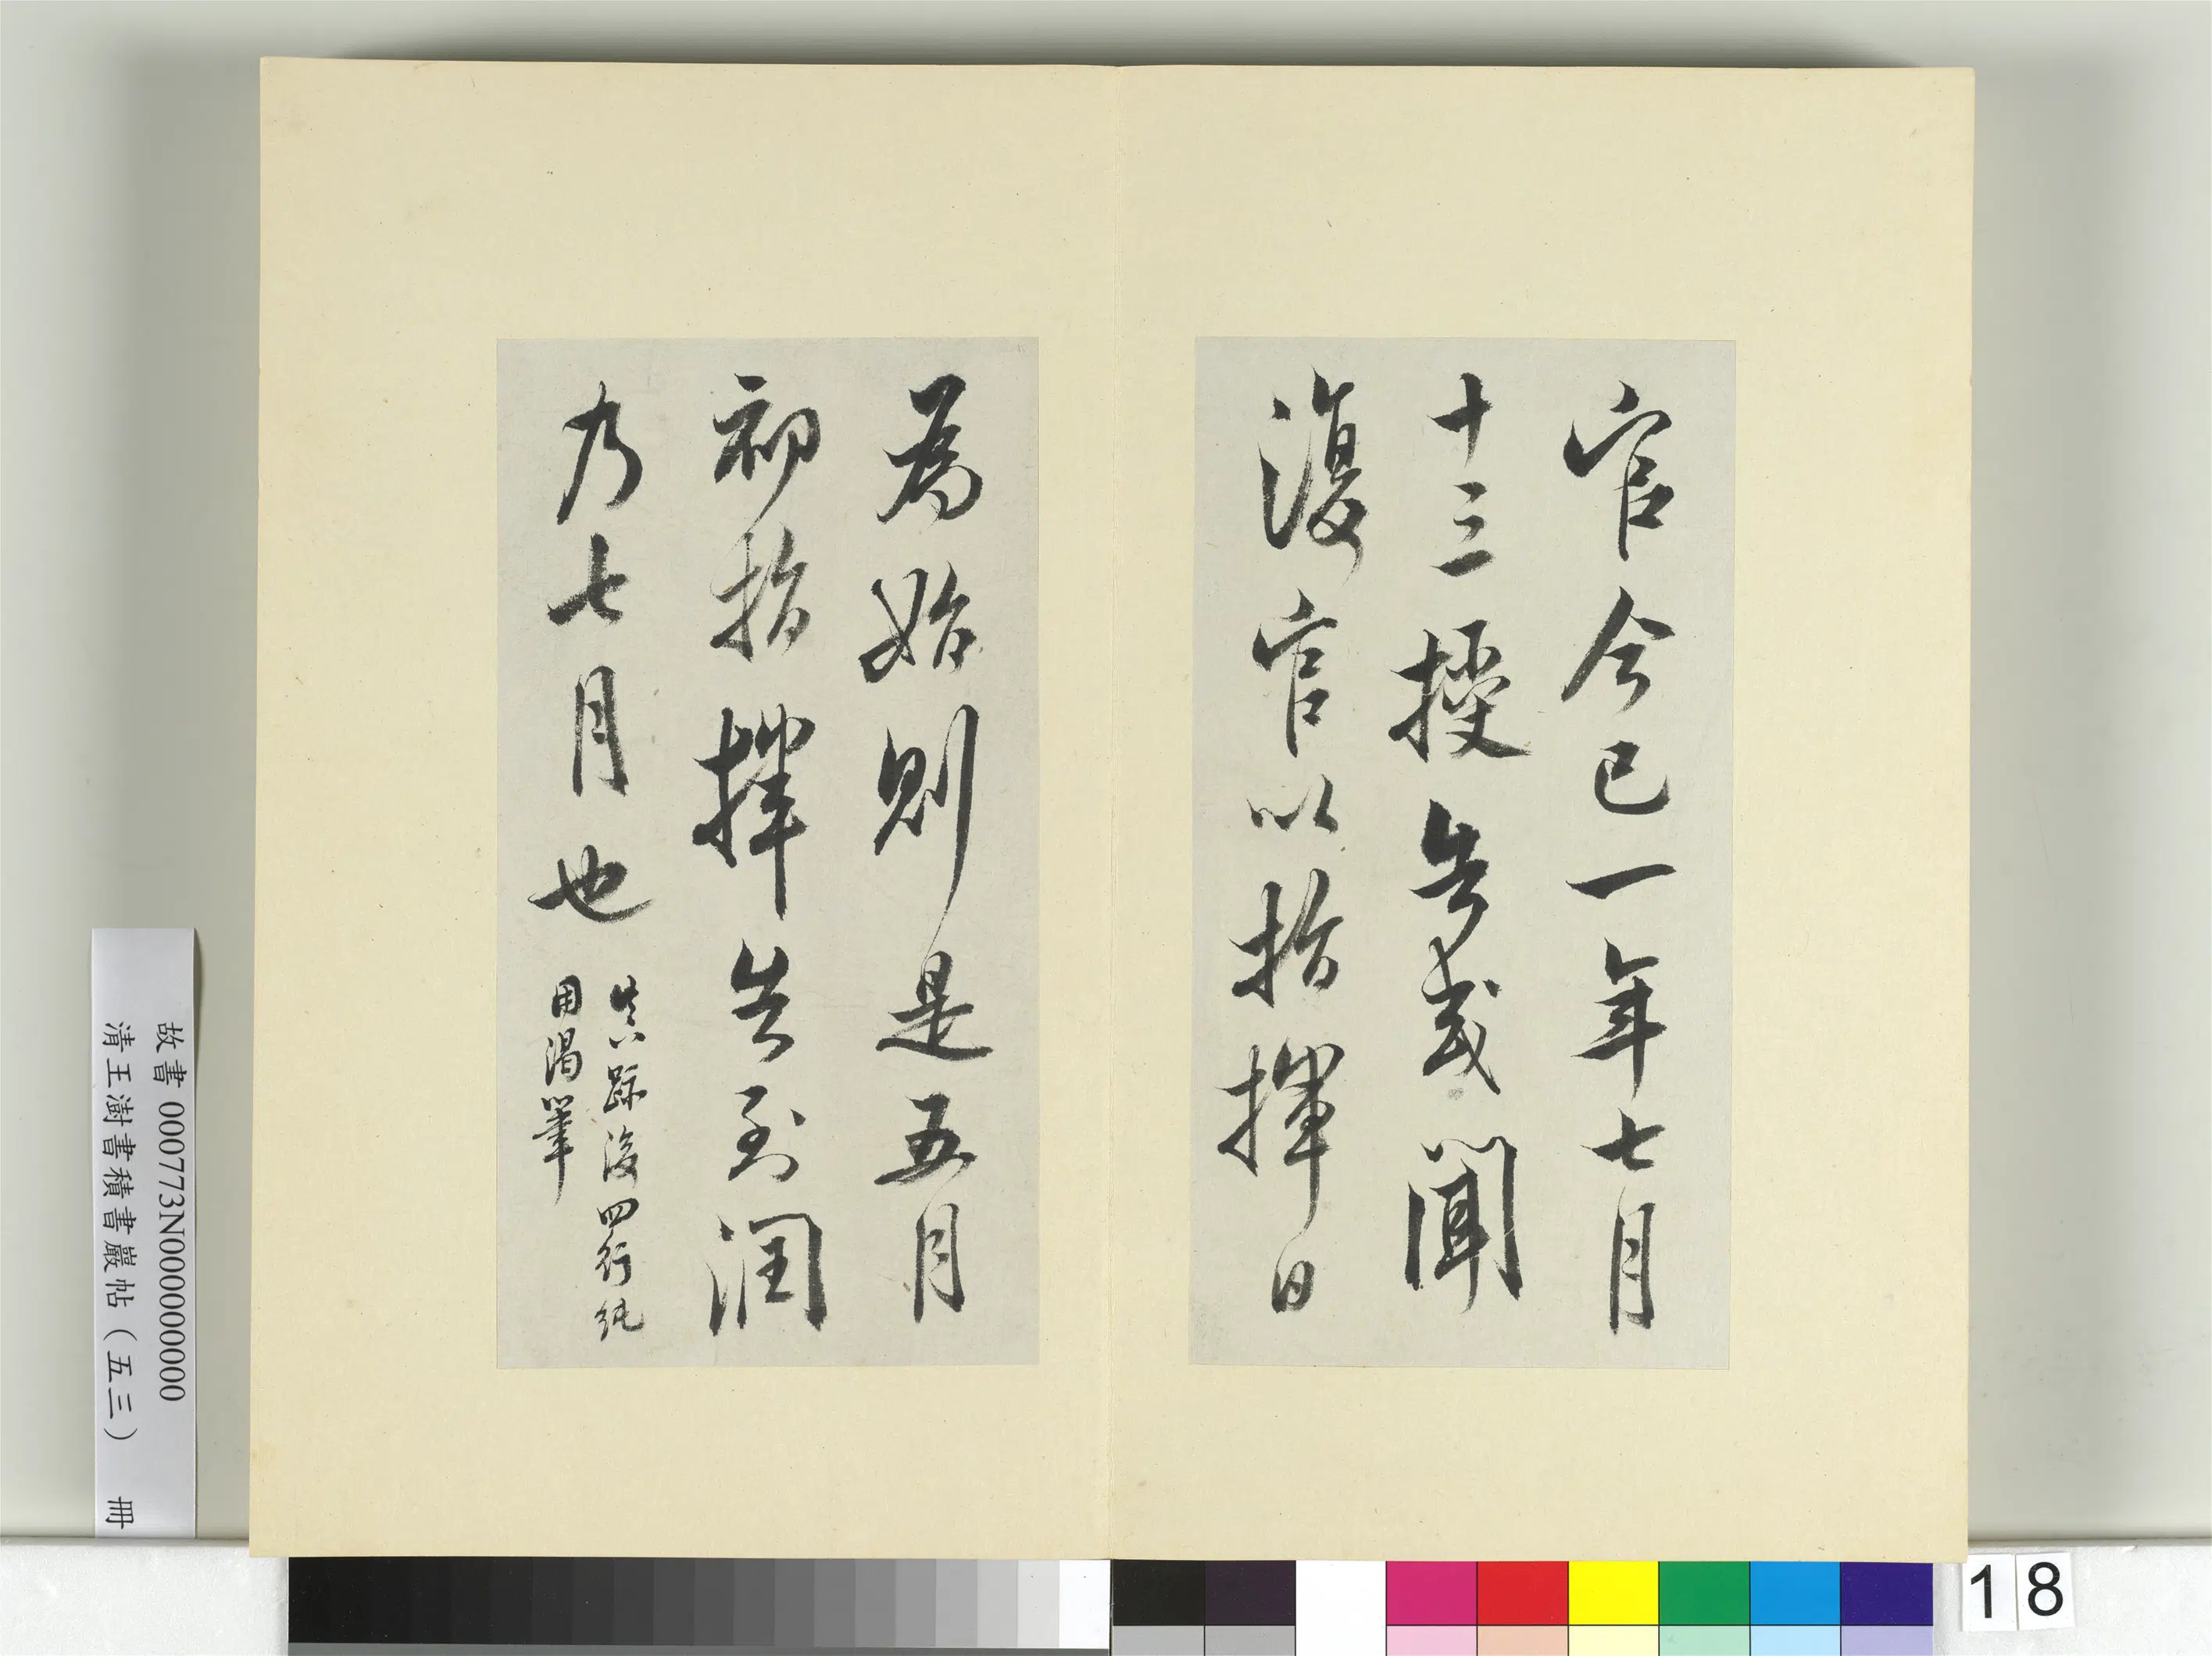 官今已一年七月
十三授告或聞
復官以指揮日
為始則是五月
初指揮告到潤
乃七月也
真跡後四行純
用渴筆
故書000773N000000000
清王澍書積書巖帖(五三) 冊
18